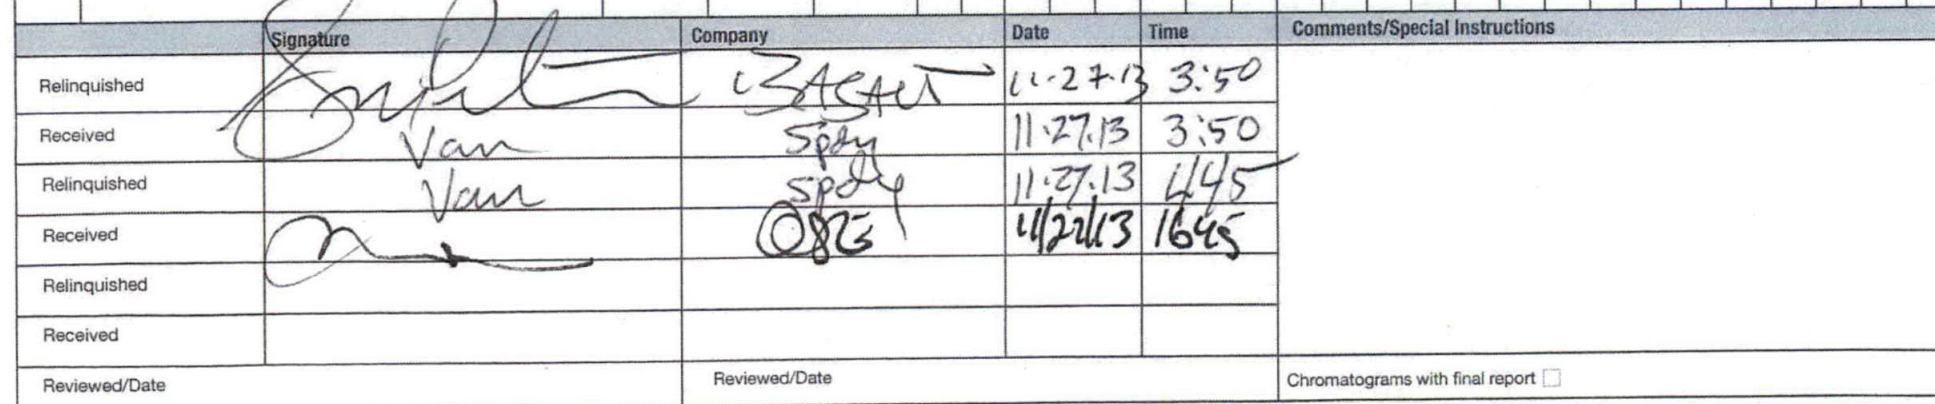 Signature Company Date Time Comments/Special Instructions
Relinquished 11-27-13 3:50
Received Van Spdy 11.27.13 3:50
Relinquished Van Spdy 11.27.13 445
Received 1645
Relinquished
Received
Reviewed/Date Reviewed/Date Chromatograms with final report